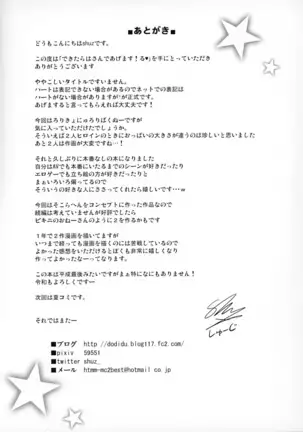 ■あとがき■
どうもこんにちはshuzです。
この度は「できたらはさんであげます!る♥」を手にとっていただき
ありがとうございます
ややこしいタイトルですいません。
ハートは表記できない場合があるのでネットでの表記は
ハートがない場合がありますが♥が正式です。
あげますると言ってもらえれば大丈夫です!
今回はろりきょにゅろりぱくぬーですが
気に入っていただけたでしょうか。
そういえば2人ヒロインのときにおっぱいの大きさが違うのは珍しいと思いました
あと2人は作画が大変ですね…!
それと久しぶりに本番なしの本になりました
自分はAVでも本番にいたるまでのシーンが好きだったり
エロゲーでも立ち絵の方が好きだったりと
まぁいろいろ拗ってるので
そういうの好きな人にささってくれたら嬉しいです…w
今回はそこらへんをコンセプトに作った作品なので
続編は考えていませんが好評でしたら
ビキニのおねーさんのように2を作るかもです
1年で2作漫画を描いてますが
いつまで経っても漫画を描くのには苦戦しているので
よかった感想をいただけるとぼくも非常に嬉しくなり
作ってよかったなーってなります。
この本は平成最後みたいですがまぁ特になにもありません!
令和もよろしくですー
次回は夏コミです。
それではまたー
shuz
しゅーじ
■ブログ http://dodidu.blog117.fc2.com/
■pixiv 59551
■twitter shuz_
■メール htmm-mc2best@hotmail.co.jp